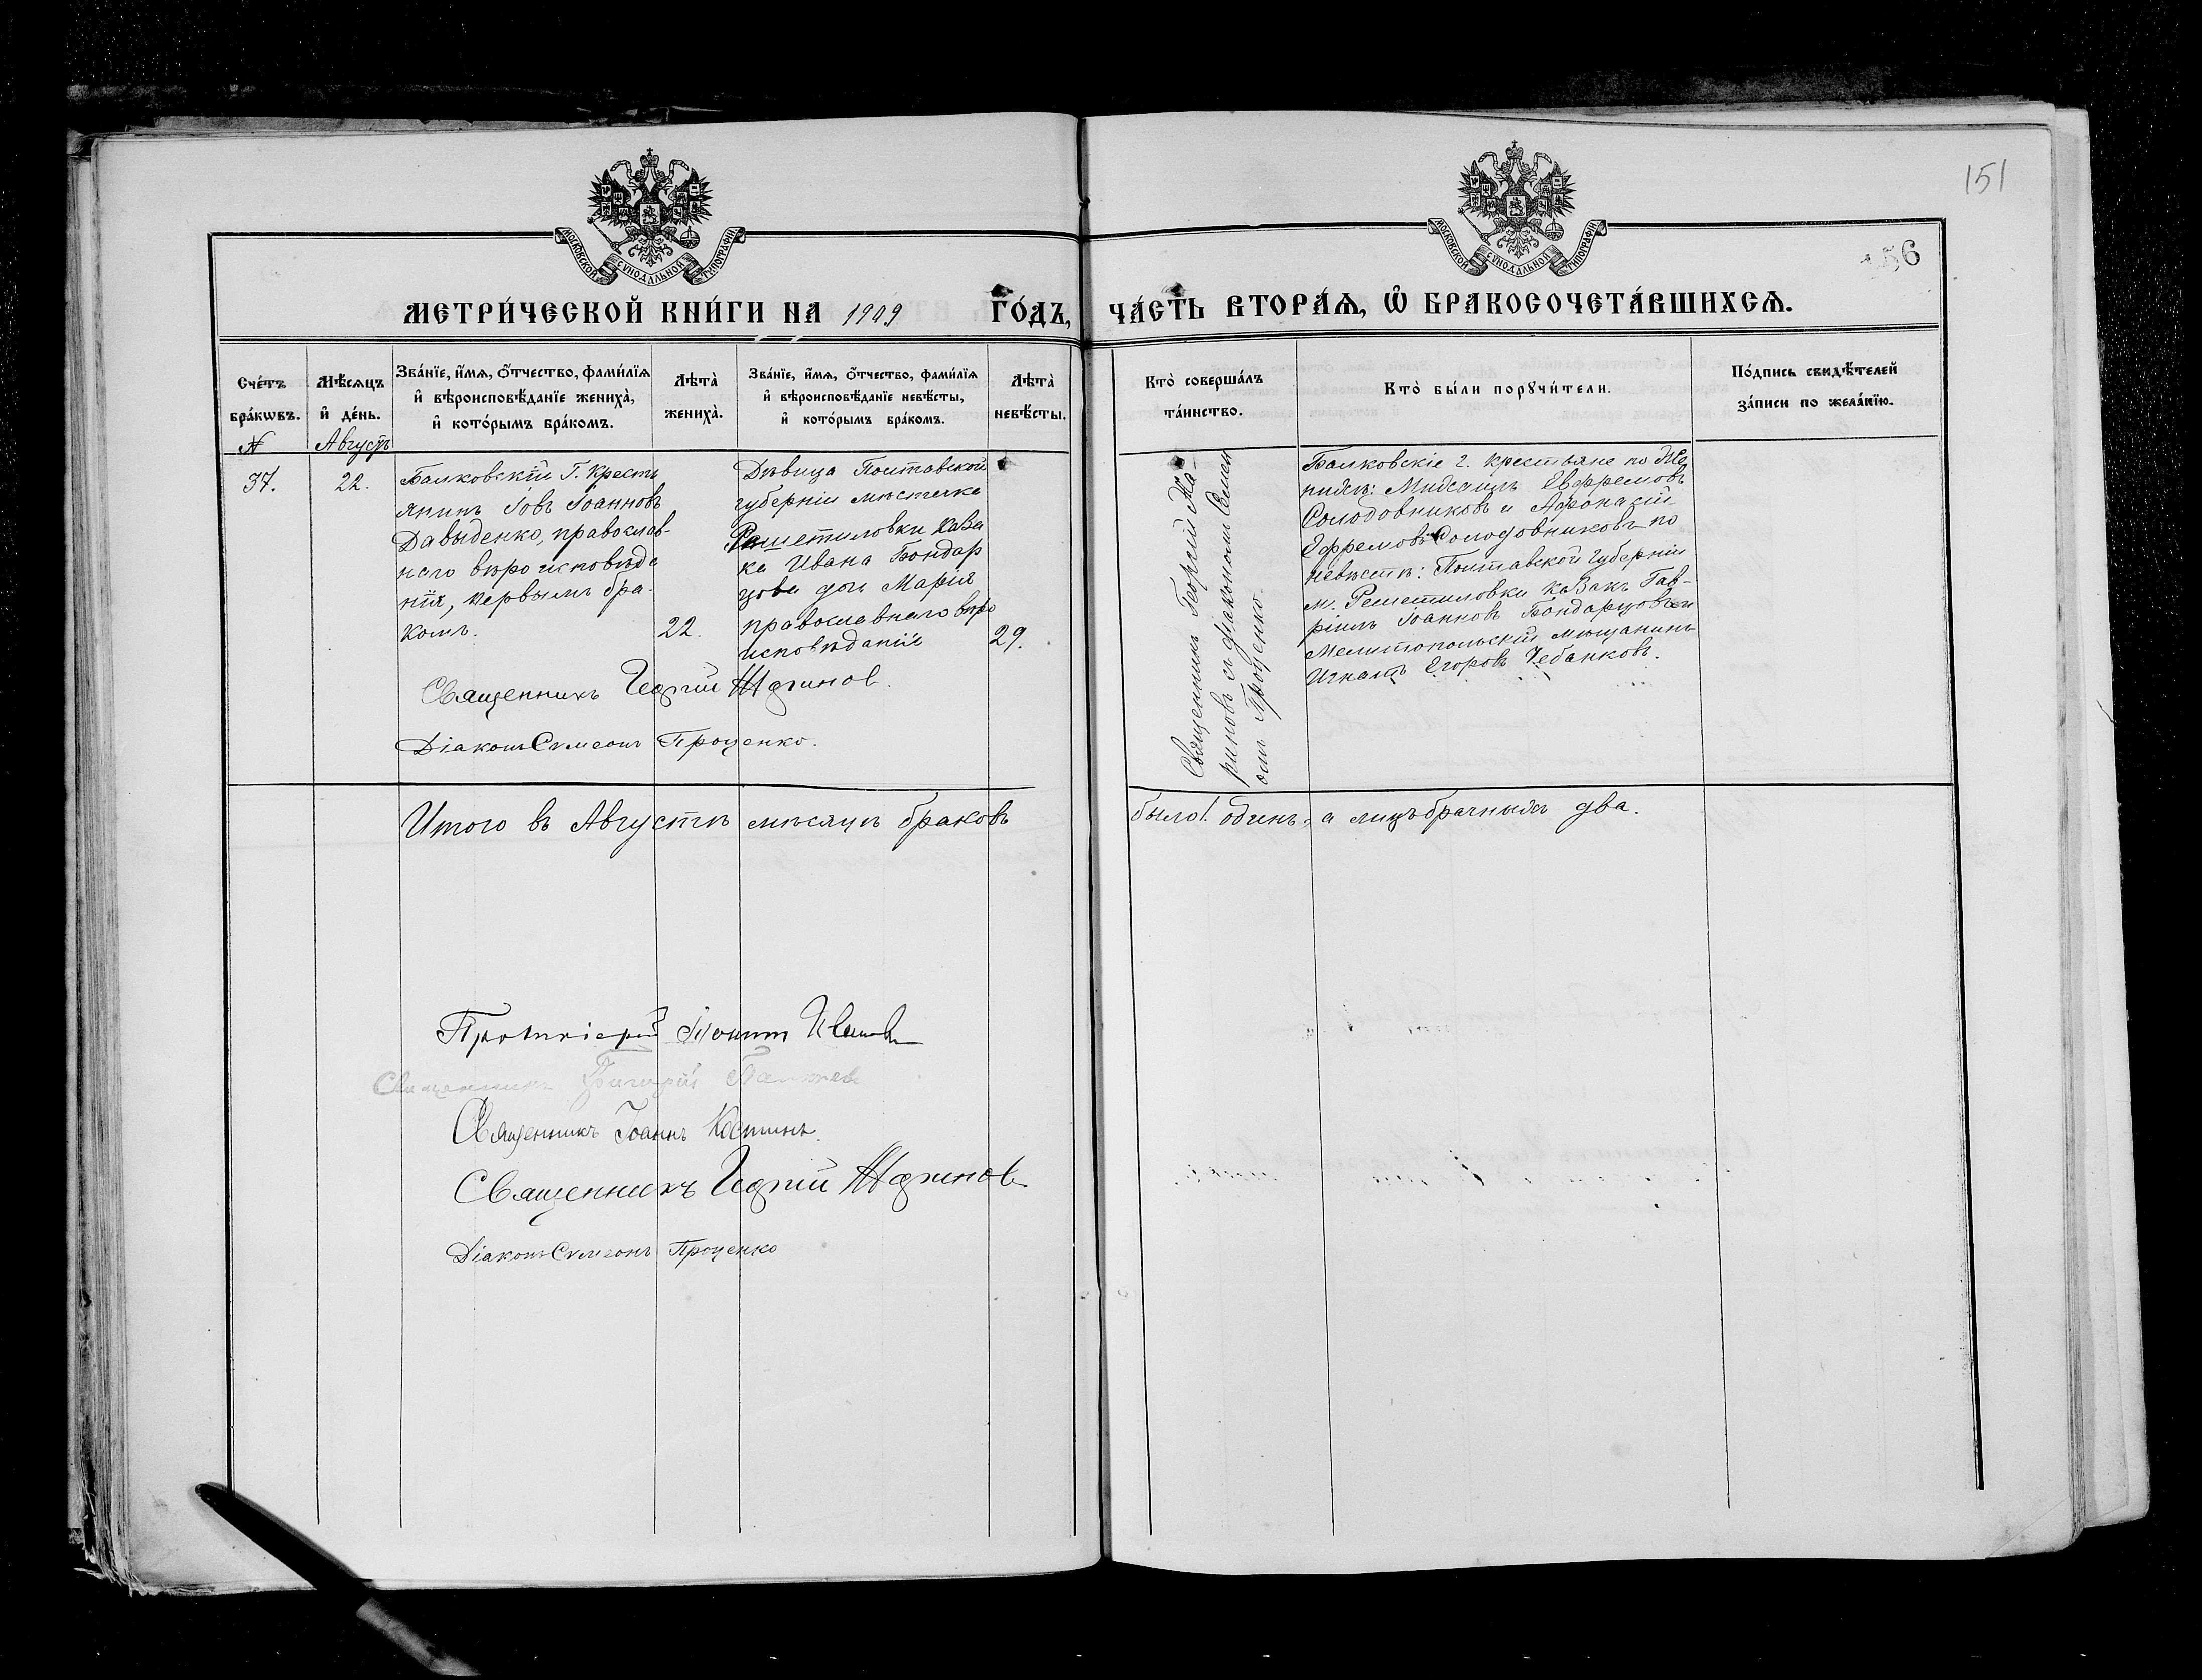 151
156
МОСКОВСКОЙ СУНОДАЛЬНОЙ ТИПОГРАФІИ
МОСКОВСКОЙ СУНОДАЛЬНОЙ ТИПОГРАФІИ
МЕТРИ́ЧЕСКОЙ КНИ́ГИ НА 1909 ГО́ДЪ, ЧА́СТЬ ВТОРА́Ѧ, Ѽ БРАКОСОЧЕТА́ВШИХСѦ.
Счéтъ бра́кѡвъ.
Мѣ́сѧцъ и҆ де́нь.
Зва́нїе, и҆́мѧ, ѻ҆́тчество, фами́лїѧ и҆ вѣроисповѣ́данїе жениха̀, и҆ кото́рымъ бра́комъ.
Лѣта̀ жениха̀.
Зва́нїе, и҆́мѧ, ѻ҆́тчество, фами́лїѧ и҆ вѣроисповѣ́данїе невѣ́сты, и҆ кото́рымъ бра́комъ.
Лѣта̀ невѣ́сты.
Кто̀ соверша́лъ та́инство.
Кто̀ бы́ли порꙋчи́тели.
По́дпись свидѣ́телей за́писи по жела́нїю.
№
Августъ
37.
22.
Балковскій Г. Кресть
янинъ Іовъ Іоанновъ
Давыденко, православ-
наго вѣроисповѣда
нія, первымъ бра-
комъ.
22.
Дѣвица Полтавской
губерніи мѣстечка
Решетиловки каза
ка Ивана Бондар
цова дочь Марія
православнаго вѣро
исповѣданія
29.
Священникъ Георгій Жа-
риновъ съ діакономъ Симео
омъ Проценко.
Балковскіе г. крестьяне по Же
нихѣ: Михаилъ Евфремовъ
Солодовниковъ и Афонасій
Ефремовъ Солодовниковъ по
невѣстѣ: Полтавской губерніи
м. Решетиловки казакъ Гав-
ріилъ Іоанновъ Бондарцовъ и
Мелитопольскій мѣщанинъ
Игнатъ Егоровъ Чебанковъ.
Священникъ Георгій Жаринов.
Діаконъ Сѵмеонъ Проценко.
Итого въ Августѣ мѣсяцѣ браковъ было 1. одинъ, а лицъ брачныхъ два.
Протоіерей
Священникъ Григорій
Священникъ Іоаннъ Костинъ.
Священникъ Георгій Жаринов
Діаконъ Сѵмеонъ Проценко